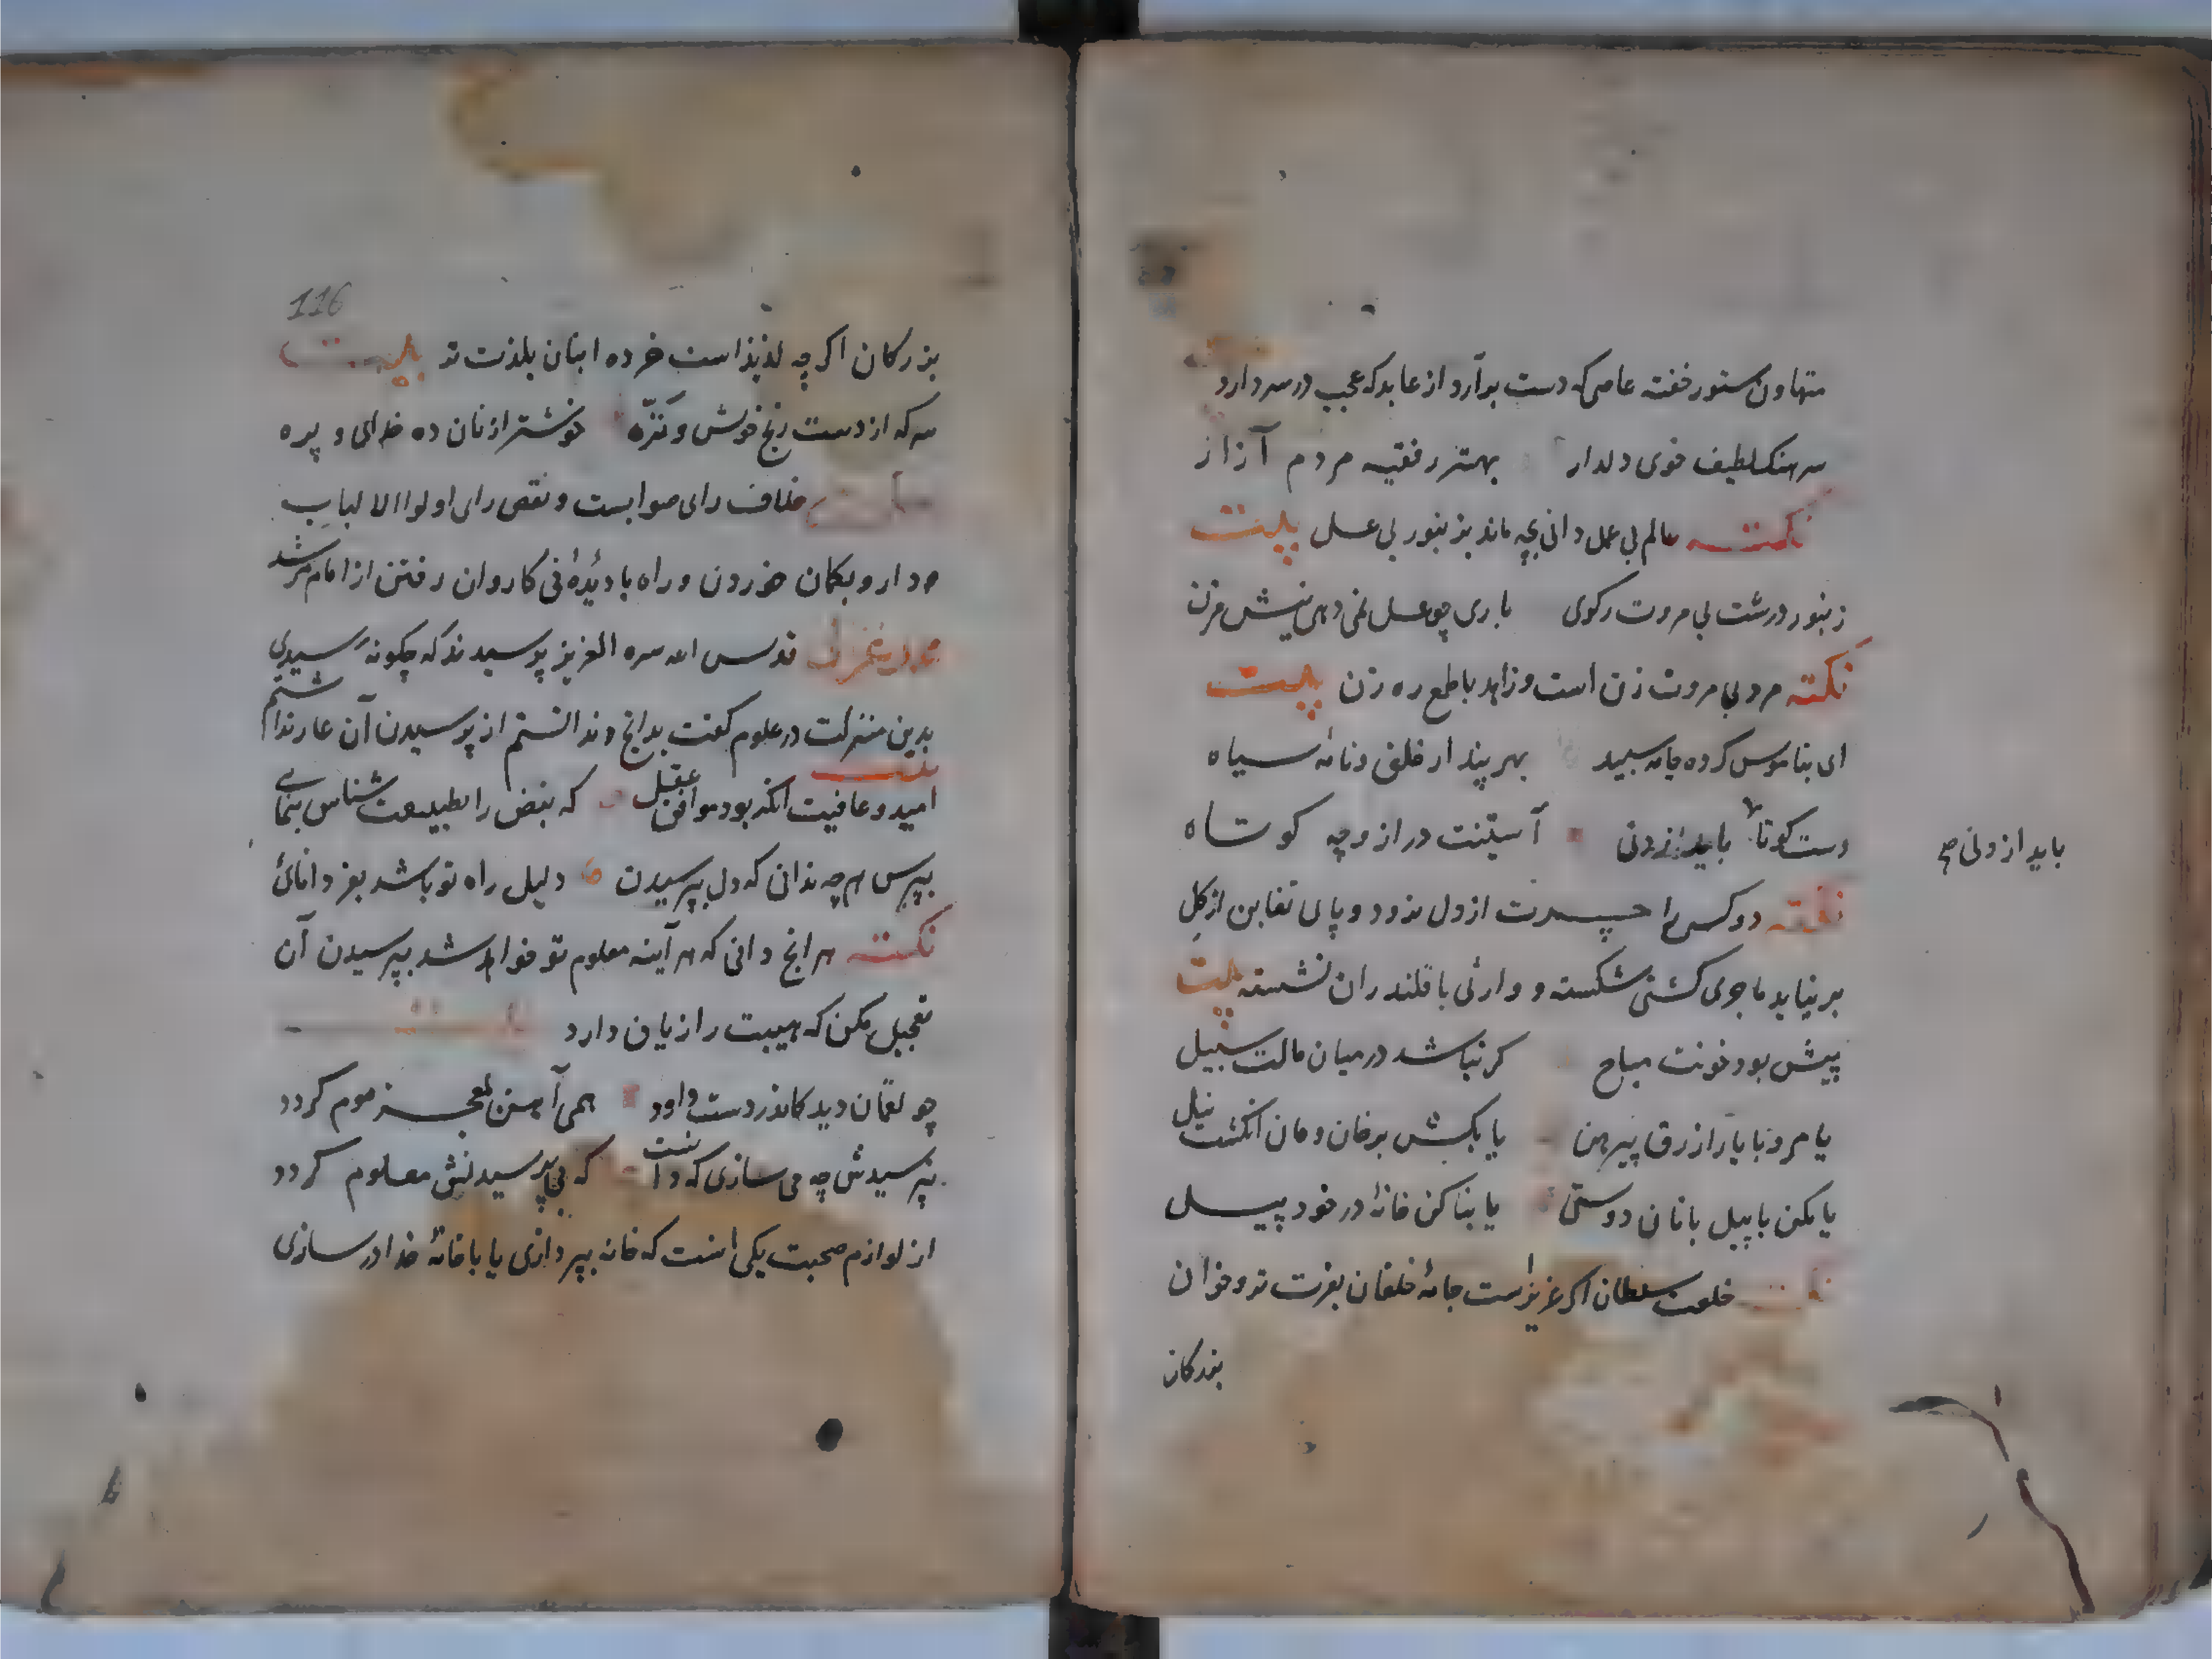 متهاون ستور خفته عاصی که دست برآرد از عابد که عجب در سر دارد
سرهنک لطیف خوی دلدار بهتر ز فقیه مردم آزار
نکته عالم بی عمل دانی بچه ماند بزنبور بی عسل بیت
زنبور درشت بی مروت را کوی باری چو عسل نمی دهی نیش مزن
نکته مرد بی مروت زن است و زاهد باطمع ره زن بیت
ای بناموس کرده جامه سپید بهر پندار خلق و نامه سیاه
دست کوتاه باید از دنی آستینت دراز و چه کوتاه
باید از دنی صح
نکته دو کس را حسرت از دل نرود و پای تغابن از کل
برنیاید تاجری کشتی شکسته و وارثی با قلندران نشسته بیت
پیش بود خونت مباح کر نباشد در میان مالت سبیل
یا مرو با یار ازرق پیرهن یا بکش بر خان و مان انکشت نیل
یا مکن با پیل بانان دوستی یا بنا کن خانهٔ در خورد پیل
خلعت سلطان اکر عزیز است جامهٔ خلقان بعزت تر و خوان
بزرکان
116
بزرکان اکر چه لذیذ است خرده انبان بلذت تر بیت
سرکه از دست رنج خویش و تره خوشتر از نان ده خدای و بره
خلاف رای صوابست و نقص رای اولوا الالباب
دارو بکمان خوردن و راه نادیدهٔ بی کاروان رفتن از امام مرشد
محمد غزالی قدس الله سره العزیز پرسیدند که چکونه رسیدی
بدین منزلت در علوم کفت بدانچ ندانستم از پرسیدن آن عار نداشتم
امید عافیت انکه بود موافق عقل که نبض را بطبیعت شناس بنمایی
بپرس هرچه ندانی که دل بپرسیدن دلیل راه تو باشد بعز دانائی
نکته هر انچ دانی که هر آینه معلوم تو خواهد شد بپرسیدن آن
تعجیل مکن که هیبت را زیان دارد
چو لقمان دید کاندر دست داود همی آهن بمعجز موم کردد
نپرسیدش چه می سازی که دانست که بی پرسیدنش معلوم کردد
از لوازم صحبت یکی انست که خانه بپردازی یا با خانهٔ خدا درسازی